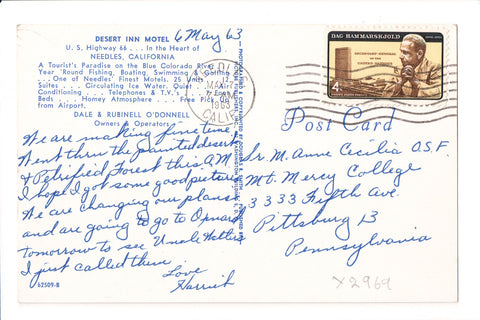 DESERT INN MOTEL
6 May 63
U. S. Highway 66 . . . In the Heart of
NEEDLES, CALIFORNIA
A Tourist's Paradise on the Blue Colorado River
Year 'Round Fishing, Boating, Swimming &
. . . One of Needles' Finest Motels. 25 Units . . . 12
Suites . . . Circulating Ice Water, Quiet
Conditioning . . . Telephones & Television
Beds . . . Homey Atmosphere . . . Free Pick Up
from Airport.
DALE & RUBINELL O'DONNELL
Owners & Operators
We are making fine time
Went thru the painted desert
& Petrified Forest this A.M.
I hope I got some good pictures
We are changing our plans
and are going to go to
tomorrow to see Uncle
I just called them
Love
Harriet
62509-B
CALIF
1963
DAG HAMMARSKJOLD
SECRETARY-GENERAL
OF THE
UNITED NATIONS
4¢
Post Card
Sr. M. Anne Cecilia O.S.F.
Mt. Mercy College
3333 Fifth Ave.
Pittsburg 13
Pennsylvania
X2969